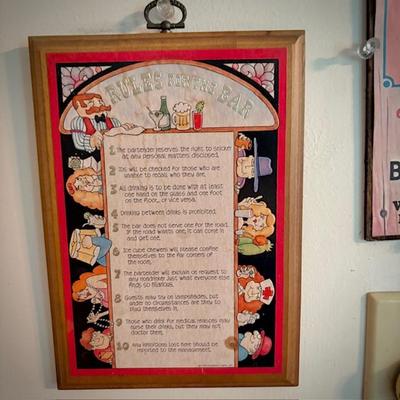 RULES FOR THE BAR
1 The bartender reserves the right to snicker
at any personal matters disclosed.
2 I.D.s will be checked for those who are
unable to recall who they are.
3 All drinking is to be done with at least
one hand on the glass and one foot
on the floor,... or vice versa.
4 Drinking between drinks is prohibited.
5 The bar does not serve one for the road.
If the road wants one, it can come in
and get one.
6 Ice cube chewers will please confine
themselves to the far corners of
the room.
7 The bartender will explain on request to
any nondrinker just what everyone else
finds so hilarious.
8 Guests may try on lampshades, but
under no circumstances are they to
plug themselves in.
9 Those who drink for medical reasons may
nurse their drinks, but they may not
doctor them.
10 Any inhibitions lost here should be
reported to the management.
B